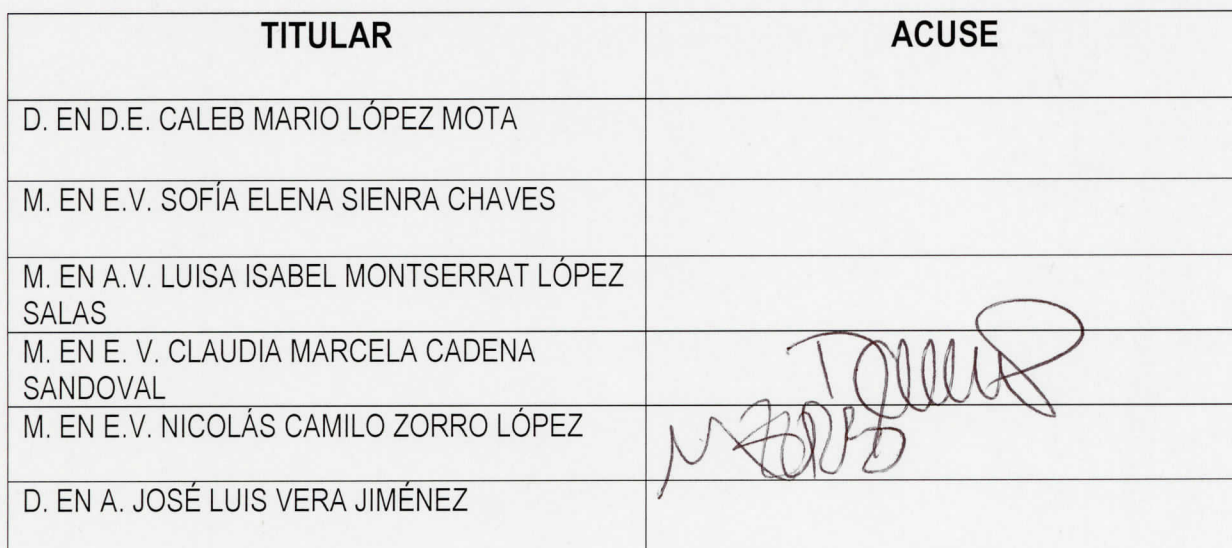 TITULAR ACUSE
D. EN D.E. CALEB MARIO LÓPEZ MOTA
M. EN E.V. SOFÍA ELENA SIENRA CHAVES
M. EN A.V. LUISA ISABEL MONTSERRAT LÓPEZ
SALAS
M. EN E. V. CLAUDIA MARCELA CADENA
SANDOVAL
M. EN E.V. NICOLÁS CAMILO ZORRO LÓPEZ
D. EN A. JOSÉ LUIS VERA JIMÉNEZ